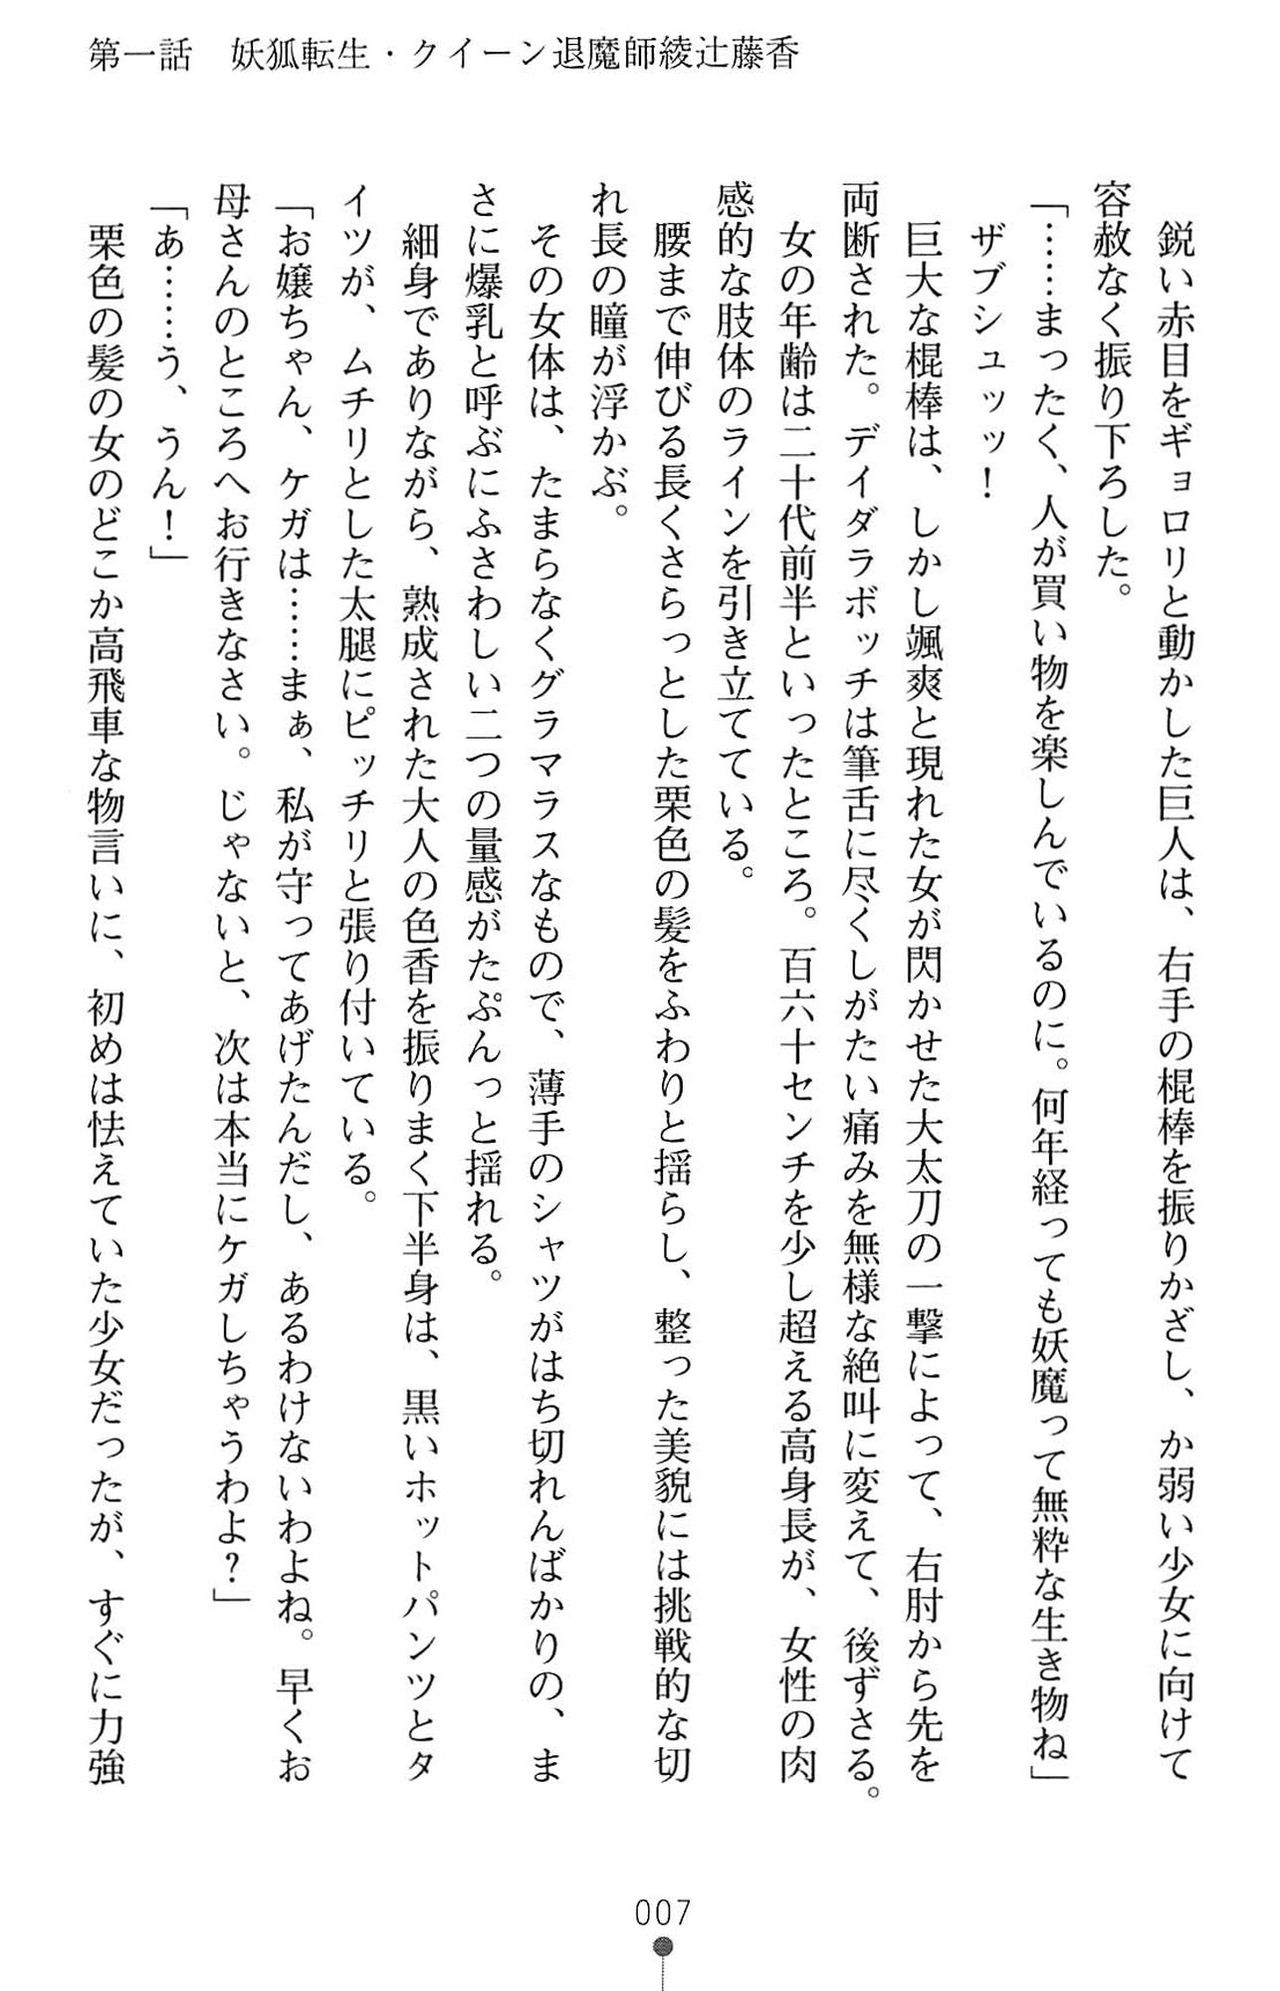 第一話　妖狐転生・クイーン退魔師綾辻藤香
　鋭い赤目をギョロリと動かした巨人は、右手の棍棒を振りかざし、か弱い少女に向けて
容赦なく振り下ろした。
「……まったく、人が買い物を楽しんでいるのに。何年経っても妖魔って無粋な生き物ね」
　ザブシュッッ！
　巨大な棍棒は、しかし颯爽と現れた女が閃かせた大太刀の一撃によって、右肘から先を
両断された。デイダラボッチは筆舌に尽くしがたい痛みを無様な絶叫に変えて、後ずさる。
　女の年齢は二十代前半といったところ。百六十センチを少し超える高身長が、女性の肉
感的な肢体のラインを引き立てている。
　腰まで伸びる長くさらっとした栗色の髪をふわりと揺らし、整った美貌には挑戦的な切
れ長の瞳が浮かぶ。
　その女体は、たまらなくグラマラスなもので、薄手のシャツがはち切れんばかりの、ま
さに爆乳と呼ぶにふさわしい二つの量感がたぷんっと揺れる。
　細身でありながら、熟成された大人の色香を振りまく下半身は、黒いホットパンツとタ
イツが、ムチリとした太腿にピッチリと張り付いている。
「お嬢ちゃん、ケガは……まぁ、私が守ってあげたんだし、あるわけないわよね。早くお
母さんのところへお行きなさい。じゃないと、次は本当にケガしちゃうわよ？」
「あ……う、うん！」
　栗色の髪の女のどこか高飛車な物言いに、初めは怯えていた少女だったが、すぐに力強
007